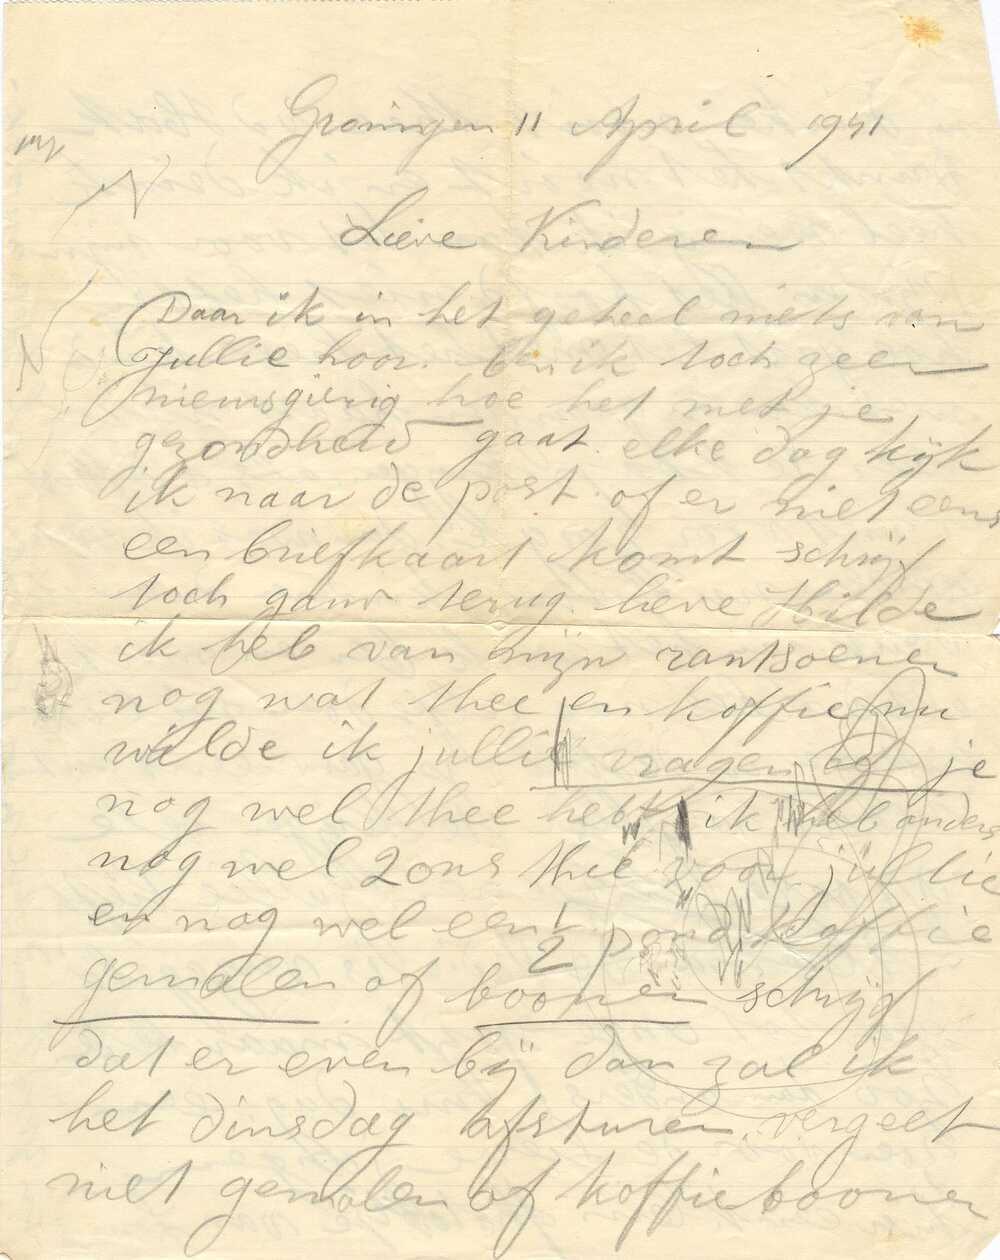 Groningen 11 April 1941
Lieve Kinderen
Daar ik in het geheel niets van
Jullie hoor. ben ik toch zeer
nieuwsgierig hoe het met je
gezondheid gaat. elke dag kijk
ik naar de post. of er niet eens
een briefkaart komt schrijf
toch gauw terug. lieve Hilde
ik heb van mijn rantsoenen
nog wat thee en koffie nu
wilde ik jullie vragen of je
nog wel thee hebt ik heb anders
nog wel 2 ons thee voor jullie
en nog wel een ½ pond koffie
gemalen of boonen schrijf
dat er even bij dan zal ik
het dinsdag afsturen vergeet
niet gemalen of koffieboonen